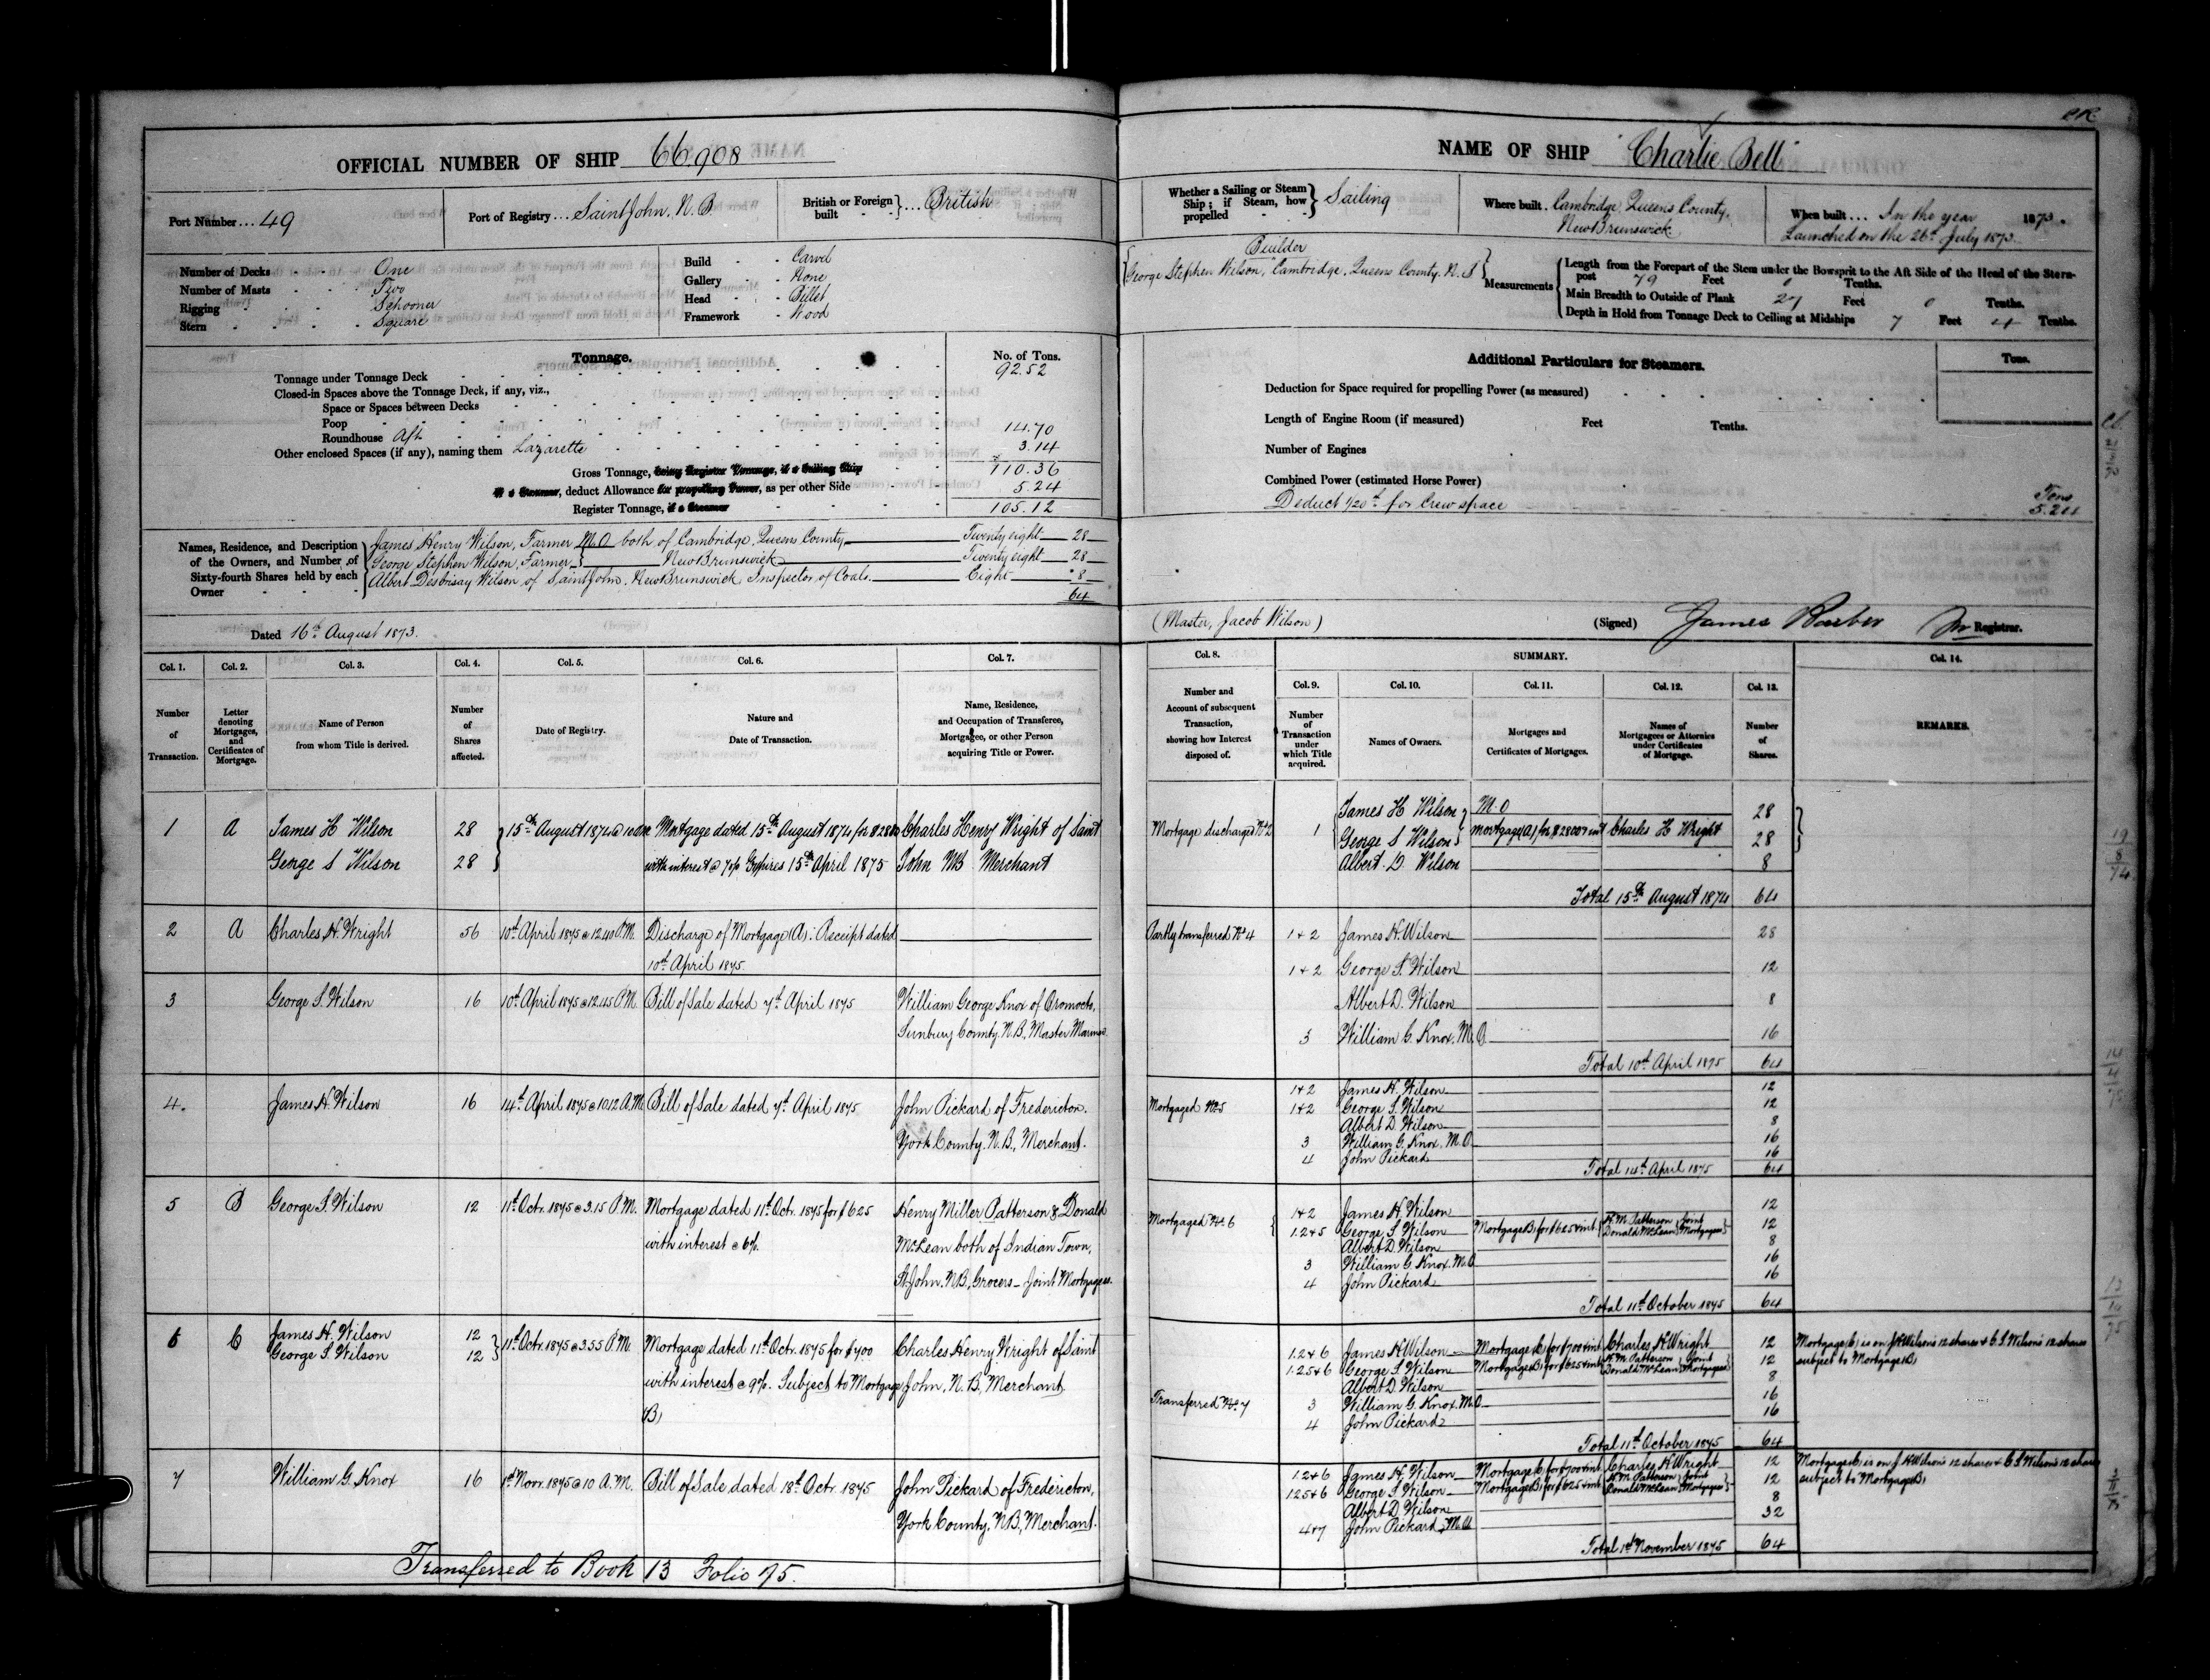 OFFICIAL NUMBER OF SHIP 66.908
Port Number ... 49
Port of Registry ... Saint John, N. B.
British or Foreign built } ... British
Number of Decks - One
Number of Masts - Two
Rigging - Schooner
Stern - Square
Build - Carvel
Gallery - None
Head - Billet
Framework - Wood
Tonnage.
No. of Tons.
Tonnage under Tonnage Deck 92.52
Closed-in Spaces above the Tonnage Deck, if any, viz.,
Space or Spaces between Decks
Poop
Roundhouse Aft 14.70
Other enclosed Spaces (if any), naming them Lazarette 3.14
Gross Tonnage, being Register Tonnage, if a Sailing Ship 110.36
If a Steamer, deduct Allowance for propelling Power, as per other Side 5.24
Register Tonnage, if a Steamer 105.12
Names, Residence, and Description of the Owners, and Number of Sixty-fourth Shares held by each Owner
James Henry Wilson, Farmer M.O both of Cambridge, Queens County Twenty eight 28
George Stephen Wilson, Farmer } New Brunswick Twenty eight 28
Albert Desbrisay Wilson of Saint John, New Brunswick Inspector of Coals. Eight 8
64
Dated 16th August 1873.
Col. 1. Col. 2. Col. 3. Col. 4. Col. 5. Col. 6. Col. 7.
Number of Transaction.
Letter denoting Mortgages, and Certificates of Mortgage.
Name of Person from whom Title is derived.
Number of Shares affected.
Date of Registry.
Nature and Date of Transaction.
Name, Residence, and Occupation of Transferee, Mortgagee, or other Person acquiring Title or Power.
1 A James H Wilson 28 } 15th August 1874 @ 10 am Mortgage dated 15th August 1874 for $2800 Charles Henry Wright of Saint
George S Wilson 28 with interest @ 7% Expires 15th April 1875 John NB Merchant
2 A Charles H. Wright 56 10th April 1875 @ 12.40 P.M. Discharge of Mortgage (A): Receipt dated
10th April 1875.
3 George S. Wilson 16 10th April 1875 @ 12.45 P.M. Bill of Sale dated 7th April 1875 William George Knox of Oromocto,
Sunbury County. N.B, Master Mariner
4. James H. Wilson 16 14th April 1875 @ 10.12 A.M. Bill of Sale dated 7th April 1875 John Pickard of Fredericton.
York County, N.B., Merchant.
5 B George S. Wilson 12 11th Octr. 1875 @ 3.15 P.M. Mortgage dated 11th Octr. 1875 for $625 Henry Miller Patterson & Donald
with interest @ 6%. McLean both of Indian Town,
St. John. NB, Grocers - Joint Mortgagees.
6 C James H. Wilson 12
George S. Wilson 12 } 11th Octr. 1875 @ 3.55 P.M. Mortgage dated 11th Octr. 1875 for $700 Charles Henry Wright of Saint
with interest @ 9%. Subject to Mortgage John, N.B, Merchant
(B)
7 William G. Knox 16 1st Novr. 1875 @ 10 A.M. Bill of Sale dated 18th Octr. 1875 John Pickard of Fredericton,
York County, N.B., Merchant.
Transferred to Book 13 Folio 75.
CR
NAME OF SHIP "Charlie Bell"
Whether a Sailing or Steam Ship; if Steam, how propelled } Sailing
Where built . Cambridge, Queens County, New Brunswick
When built ... In the year 1873.
Launched on the 26th July 1873
Builder
George Stephen Wilson, Cambridge, Queens County. N. B
Measurements
Length from the Forepart of the Stem under the Bowsprit to the Aft Side of the Head of the Stern-
post 79 Feet 0 Tenths.
Main Breadth to Outside of Plank 27 Feet 0 Tenths.
Depth in Hold from Tonnage Deck to Ceiling at Midships 7 Feet 4 Tenths.
Additional Particulars for Steamers.
Tons.
Deduction for Space required for propelling Power (as measured)
Length of Engine Room (if measured) Feet Tenths.
Number of Engines
Combined Power (estimated Horse Power)
Deduct 1/20th for Crew space Tons 5.24
(Master, Jacob Wilson)
(Signed) James Barber Registrar.
Col. 8. SUMMARY. Col. 14.
Col. 9. Col. 10. Col. 11. Col. 12. Col. 13.
Number and Account of subsequent Transaction, showing how Interest disposed of.
Number of Transaction under which Title acquired.
Names of Owners.
Mortgages and Certificates of Mortgages.
Names of Mortgagees or Attornies under Certificates of Mortgage.
Number of Shares.
REMARKS.
Mortgage discharged No 2 1 James H Wilson M.O 28
George S Wilson Mortgage (A) for $2800 & int Charles H Wright 28
Albert. D. Wilson 8
Total 15th August 1874 64
Partly transferred No 4 1+2 James H. Wilson 28
1+2 George S. Wilson 12
Albert D. Wilson 8
3 William G. Knox. M.O. 16
Total 10th April 1875 64
1+2 James H. Wilson 12
Mortgaged No 5 1+2 George S. Wilson 12
Albert D. Wilson 8
3 William G. Knox. M.O 16
4 John Pickard 16
Total 14th April 1875 64
1+2 James H. Wilson 12
Mortgaged No. 6 1.2+5 George S. Wilson Mortgage (B) for $625 & int { H. M. Patterson Donald McLean } Joint Mortgagees 12
Albert D. Wilson 8
3 William G. Knox. M.O 16
4 John Pickard 16
Total 11th October 1875 64
1.2+6 James H Wilson Mortgage (C) for $700 & int Charles H. Wright 12 Mortgage (C) is on J H Wilson's 12 shares & G S Wilson's 12 shares
1.2.5+6 George S. Wilson Mortgage (B) for $625 & int H. M. Patterson Donald McLean } Joint Mortgagees 12 subject to Mortgage (B)
Albert D. Wilson 8
Transferred No. 7 3 William G. Knox. M.O 16
4 John Pickard 16
Total 11th October 1875 64
1.2+6 James H. Wilson Mortgage (C) for $700 & int Charles H. Wright 12 Mortgage (C) is on J H Wilson's 12 shares & G S Wilson's 12 shares
1.2.5+6 George S. Wilson Mortgage (B) for $625 & int H. M. Patterson Donald McLean } Joint Mortgagees 12 subject to Mortgage (B)
Albert D. Wilson 8
4+7 John Pickard, M.O 32
Total 1st November 1875 64